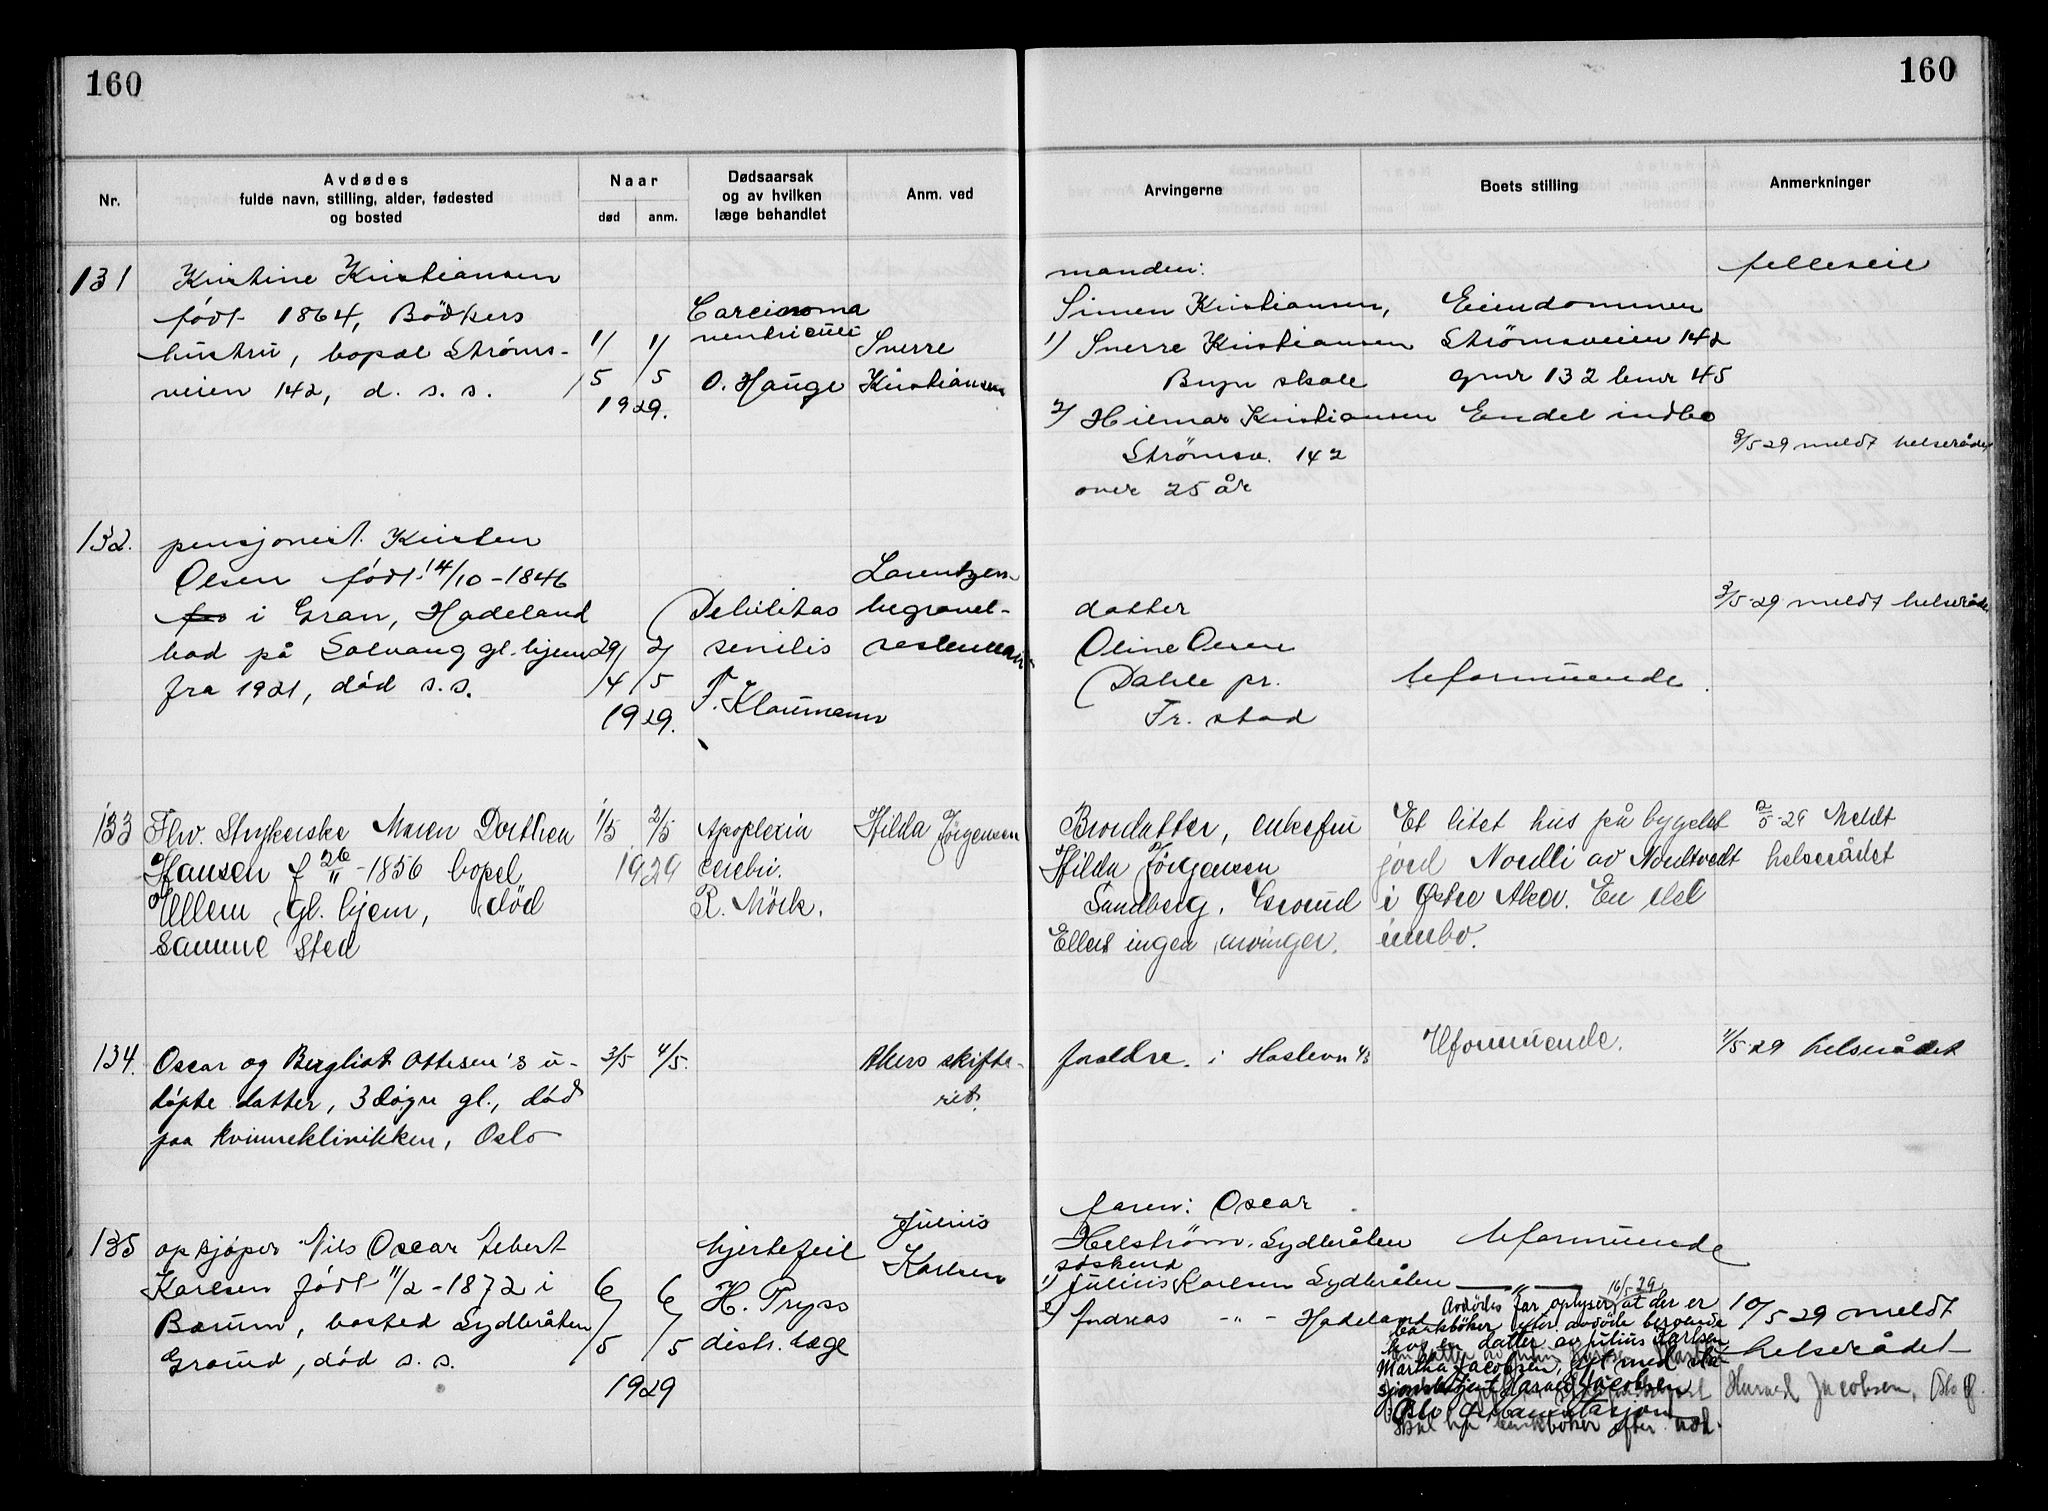 160
160
Nr.
Avdødes
fulde navn, stilling, alder, fødested
og bosted
Naar
død
anm.
Dødsaarsak
og av hvilken
læge behandlet
Anm. ved
Arvingerne
Boets stilling
Anmerkninger
131
Kristine Kristiansen
født 1864, Bödkers
hustru, bopæl Ströms-
veien 142, d. s. s.
1/5 1/5
1929.
Carcinoma
ventriculi
O. Hauge
Sverre
Kristiansen
manden:
Simen Kristiansen,
1) Sverre Kristiansen
Bryn skole
2) Hilmar Kristiansen
Strömsv. 142
over 25 år
Eiendommen
Strømsveien 142
gnr 132 bnr 45
Endel indbo
felleseie
3/5 29 meldt helserådet
132.
pensjonist Kristen
Olsen født 14/10-1846
i Gran, Hadeland
bod på Solvang gl. hjem
fra 1921, död s.s.
29/4 2/5
1929.
Debilitas
senilis
F. Klaumann
Lorentzen
begravel-
datter
Oline Olsen
Dahle pr.
Fr. stad
Uformuende
3/5-29 meldt helserådet
133
Fhv. Strykerske Maren Dorthea
Hansen f 26/11-1856 bopel
Ullern gl. hjem, död
samme sted
1/5 2/5
1929
Apoplexia
cerebri.
R. Mörk.
Hilda Jörgensen
Brordatter, enkefru
Hilda Jörgensen
Sandberg, Grorud
Ellers ingen arvinger.
Et litet hus på bygslet
jord Nordli av Nordtvedt
i Østre Aker. En del
innbo.
2/5-29 Meldt
helserådet
134.
Oscar og Bergliot Ottesen's u-
döpte datter, 3 dögn gl., död
paa Kvinneklinikken, Oslo
3/5 4/5.
Akers skifte-
ret.
foreldre. i Haslevn
Uformuende.
4/5-29 helserådet
135
opkjöper Nils Oscar Lebert
Karlsen född 11/2-1872 i
Bærum, bosted Sydbråten
Grorud, död s. s.
6/5 6/5
1929
hjertefeil
H. Pryss
distr. læge
Julius
Karlsen
faren: Oscar
Helström, Sydbråten
söskend
1) Julius Karlsen Sydbråten
2) Andreas -"- Hadeland
Uformuende
—"—
16/5 29
Avdödes far oplyser at der er
bankböker efter avdöde beroende
hos en datter av Julius Karlsen
Martha Jacobsen, gift med sta-
sjonsbetjent Harald Jacobsen
Oslo Östbanestasjon
bankböker efter
10/5 29 meldt
helserådet
Harald Jacobsen, Oslo Ø.